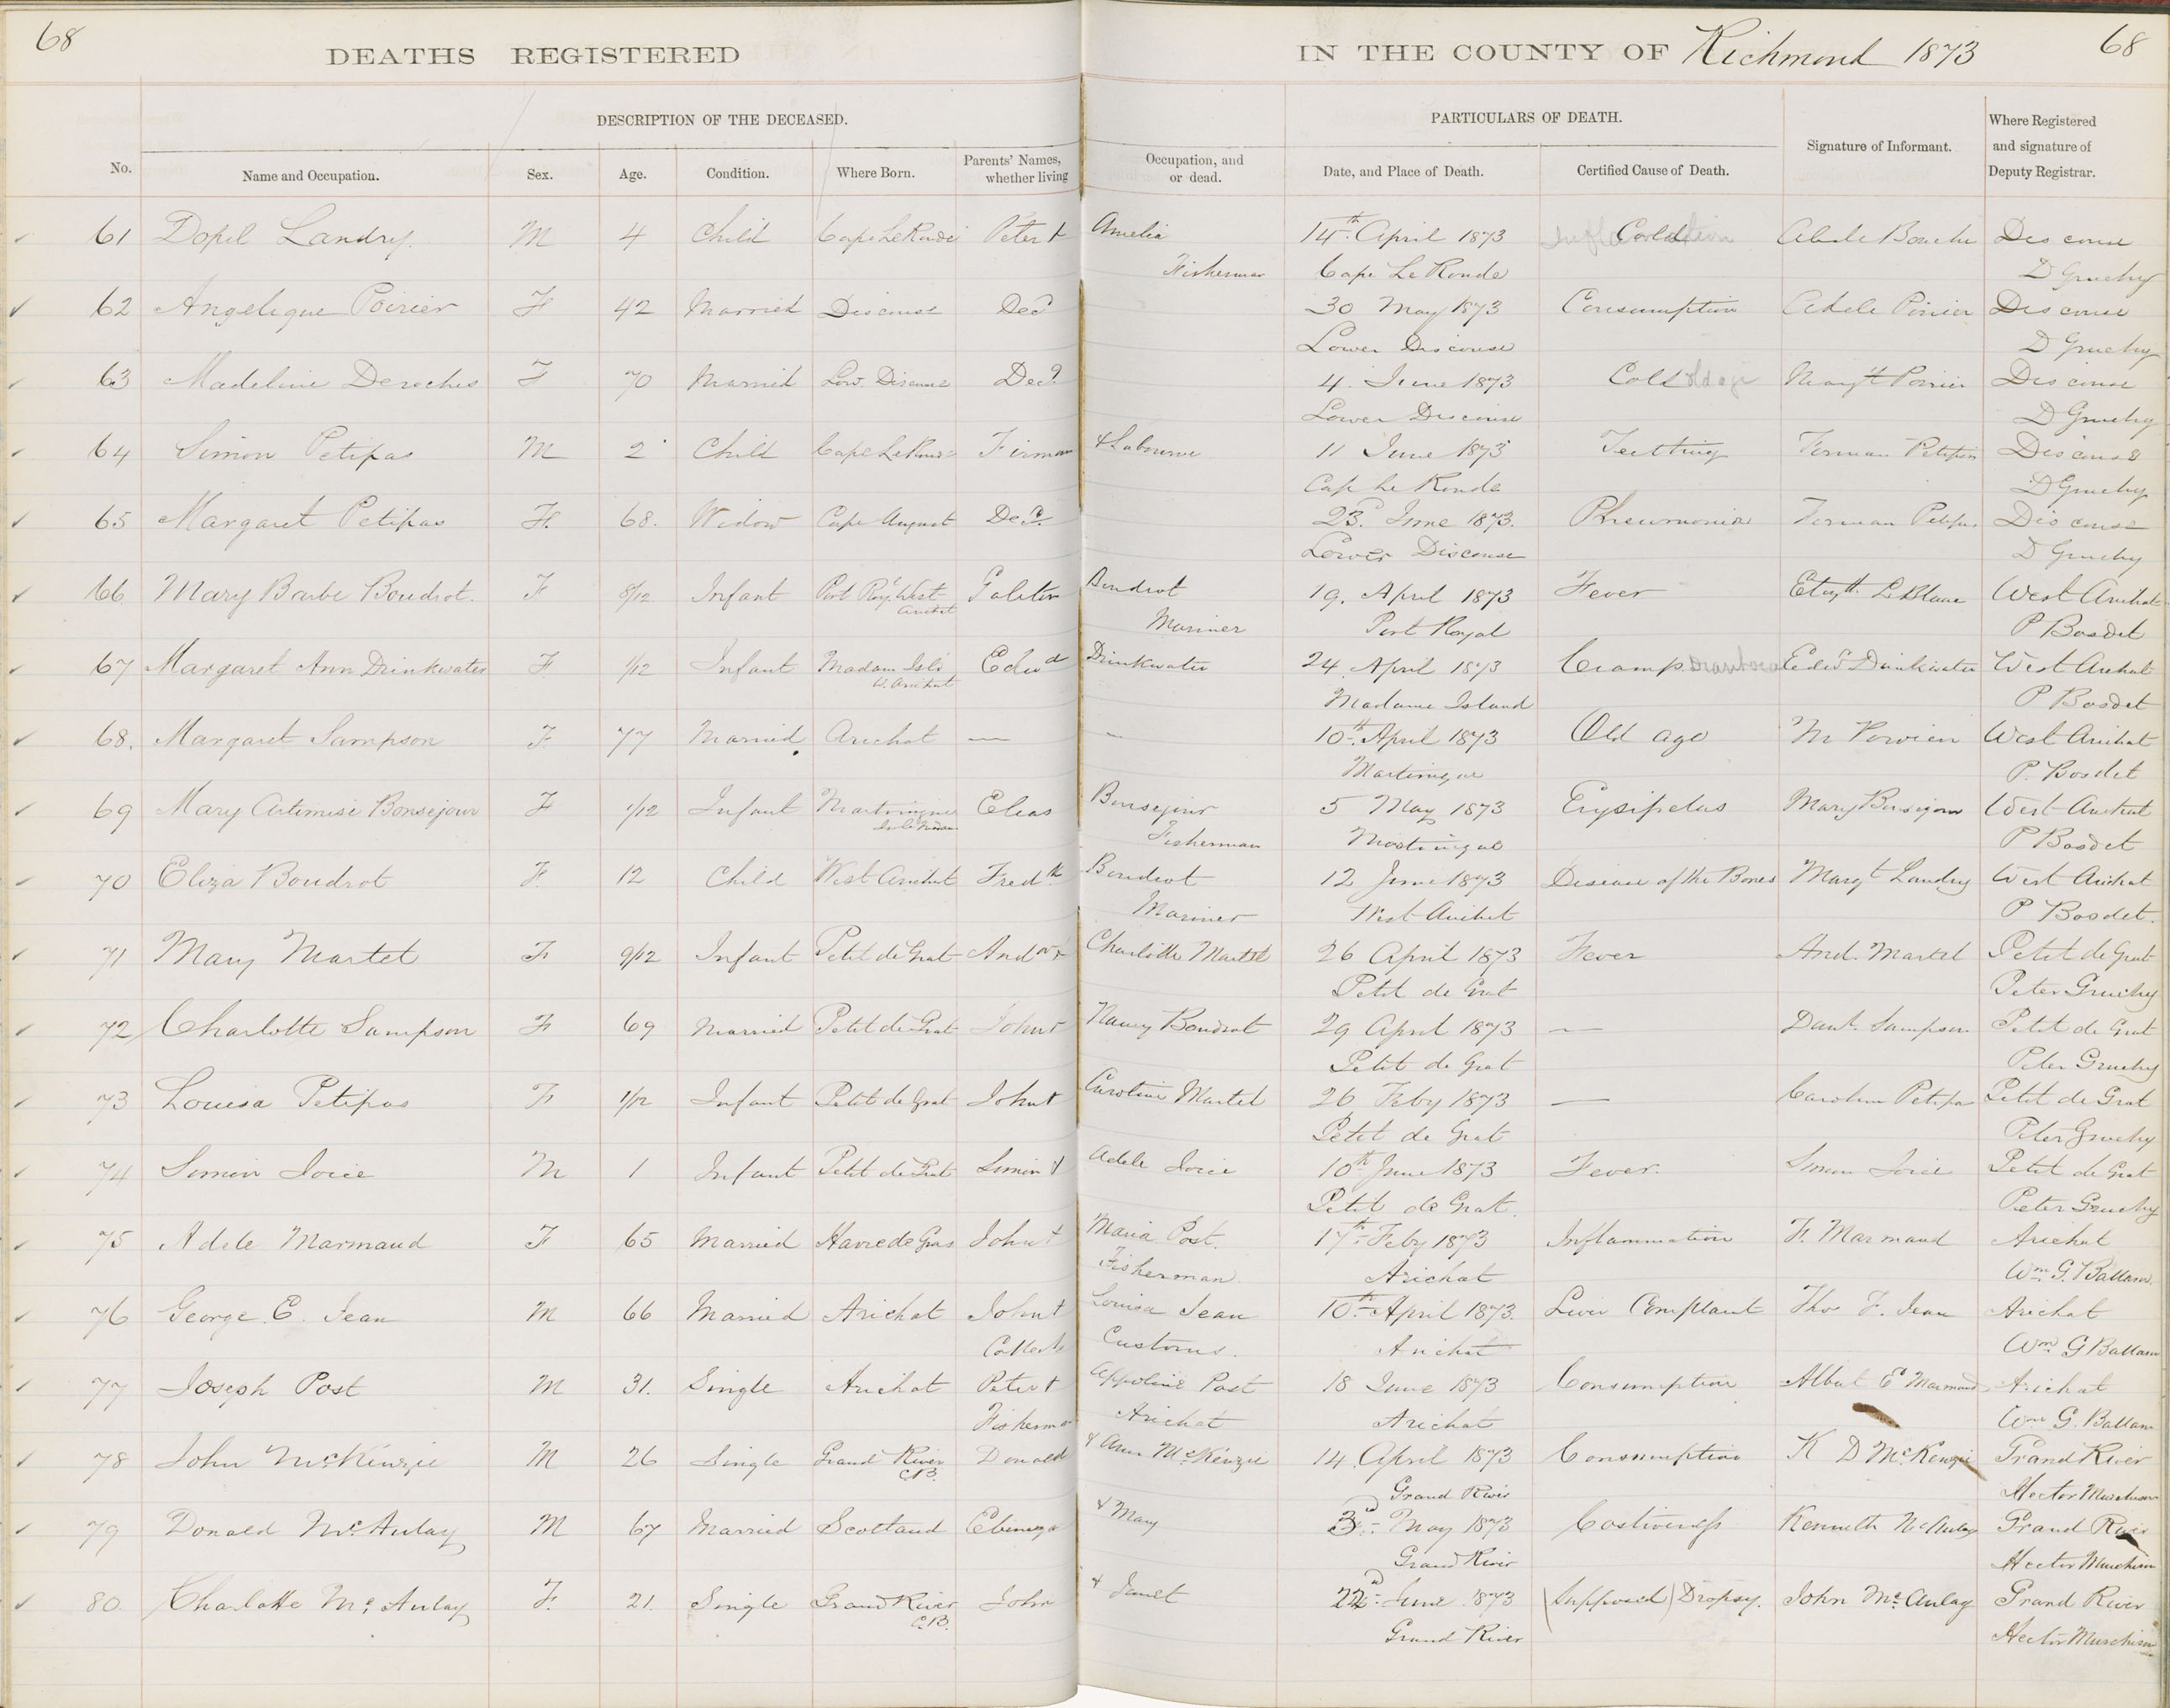 68
DEATHS REGISTERED
IN THE COUNTY OF Richmond 1873
68
DESCRIPTION OF THE DECEASED.
PARTICULARS OF DEATH.
No.
Name and Occupation.
Sex.
Age.
Condition.
Where Born.
Parents' Names, whether living
Occupation, and or dead.
Date, and Place of Death.
Certified Cause of Death.
Signature of Informant.
Where Registered and signature of Deputy Registrar.
61 Landry. M 4 Child Cape Le Ronde Peter + Amelia 14th April 1873 Cold Discouse
Fisherman Cape Le Ronde D Gruchy
62 Angelique Poirier F 42 Married Discouse Decd 30 May 1873 Consumption Adele Poirier Discouse
Lower Discouse D Gruchy
63 Madeline Deroches F 70 Married Low. Discouse Decd 4. June 1873 Cold old age Margt Poirier Discouse
Lower Discouse D Gruchy
64 Simon Petipas M 2 Child Cape Le Ronde Firman 11 June 1873 Teething Firman Petipas Discouse
Cape Le Ronde D Gruchy
65 Margaret Petipas F. 68. Widow Cape August Decd. 23d. June 1873. Pneumonia Firman Petipas Discouse
Lower Discouse D Gruchy
66 Mary Barbe Boudrot. F 8/12 Infant Port Roy. West Arichat Boudrot 19. April 1873 Fever LeBlanc West Arichat
Mariner Port Royal P Bosdet
67 Margaret Ann Drinkwater F 1/12 Infant Madam Isle W. Arichat Edwd Drinkwater 24 April 1873 Cramp Diarrhoea Edwd Drinkwater West Arichat
Madame Island P Bosdet
68. Margaret Sampson F. 77 Married Arichat — — 10th. April 1873 Old age M West Arichat
Martinique P. Bosdet
69 Mary Artimise Bonsejour F 1/12 Infant Martinique Isle Madam Elias Bonsejour 5 May 1873 Erysipelas Mary Bonsejour West Arichat
Fisherman Martinique P Bosdet
70 Eliza Boudrot F. 12 Child West Arichat Fredk Boudrot 12 June 1873 Disease of the Bones Margt Landry West Arichat
Mariner West Arichat P Bosdet.
71 Mary Martel F 9/12 Infant Petit de Grat Andw + Charlotte Martel 26 April 1873 Fever And. Martel Petit de Grat
Petit de Grat Peter Gruchy
72 Charlotte Sampson F 69 Married Petit de Grat John + Nancy Boudrot 29 April 1873 — Danl. Sampson Petit de Grat
Petit de Grat Peter Gruchy
73 Louisa Petipas F 1/12 Infant Petit de Grat John + Caroline Martel 26 Feby 1873 — Caroline Petipas Petit de Grat
Petit de Grat Peter Gruchy
74 Simon Joice M 1 Infant Petit de Grat Simon + Adele Joice 10th June 1873 Fever. Simon Joice Petit de Grat
Petit de Grat. Peter Gruchy
75 Adele Marmaud F 65 Married Havre de Gras John + Maria Post. 17th. Feby 1873 Inflammation F. Marmaud Arichat
Fisherman Arichat Wm. G. Ballam.
76 George E. Jean M 66 Married Arichat John + Louisa Jean 10th. April 1873. Liver Complaint Thos F. Jean Arichat
Customs. Arichat Wm. G Ballam
77 Joseph Post M 31. Single Arichat Peter + Appoline Post 18 June 1873 Consumption Albert E Marmaud Arichat
Fisherman Arichat Arichat Wm G. Ballam
78 John McKenzie M 26 Single Grand River C.B. Donald + Ann McKenzie 14 April 1873 Consumption K D McKenzie Grand River
Grand River Hector Murchison
79 Donald McAulay M 67 Married Scotland Ebenezer + Mary 3rd. May 1873 Costiveness Kenneth McAulay Grand River
Grand River Hector Murchison
80 Charlotte Mc Aulay F. 21. Single Grand River C.B. John + Janet 22nd. June 1873 (Supposed) Dropsy. John Mc Aulay Grand River
Grand River Hector Murchison